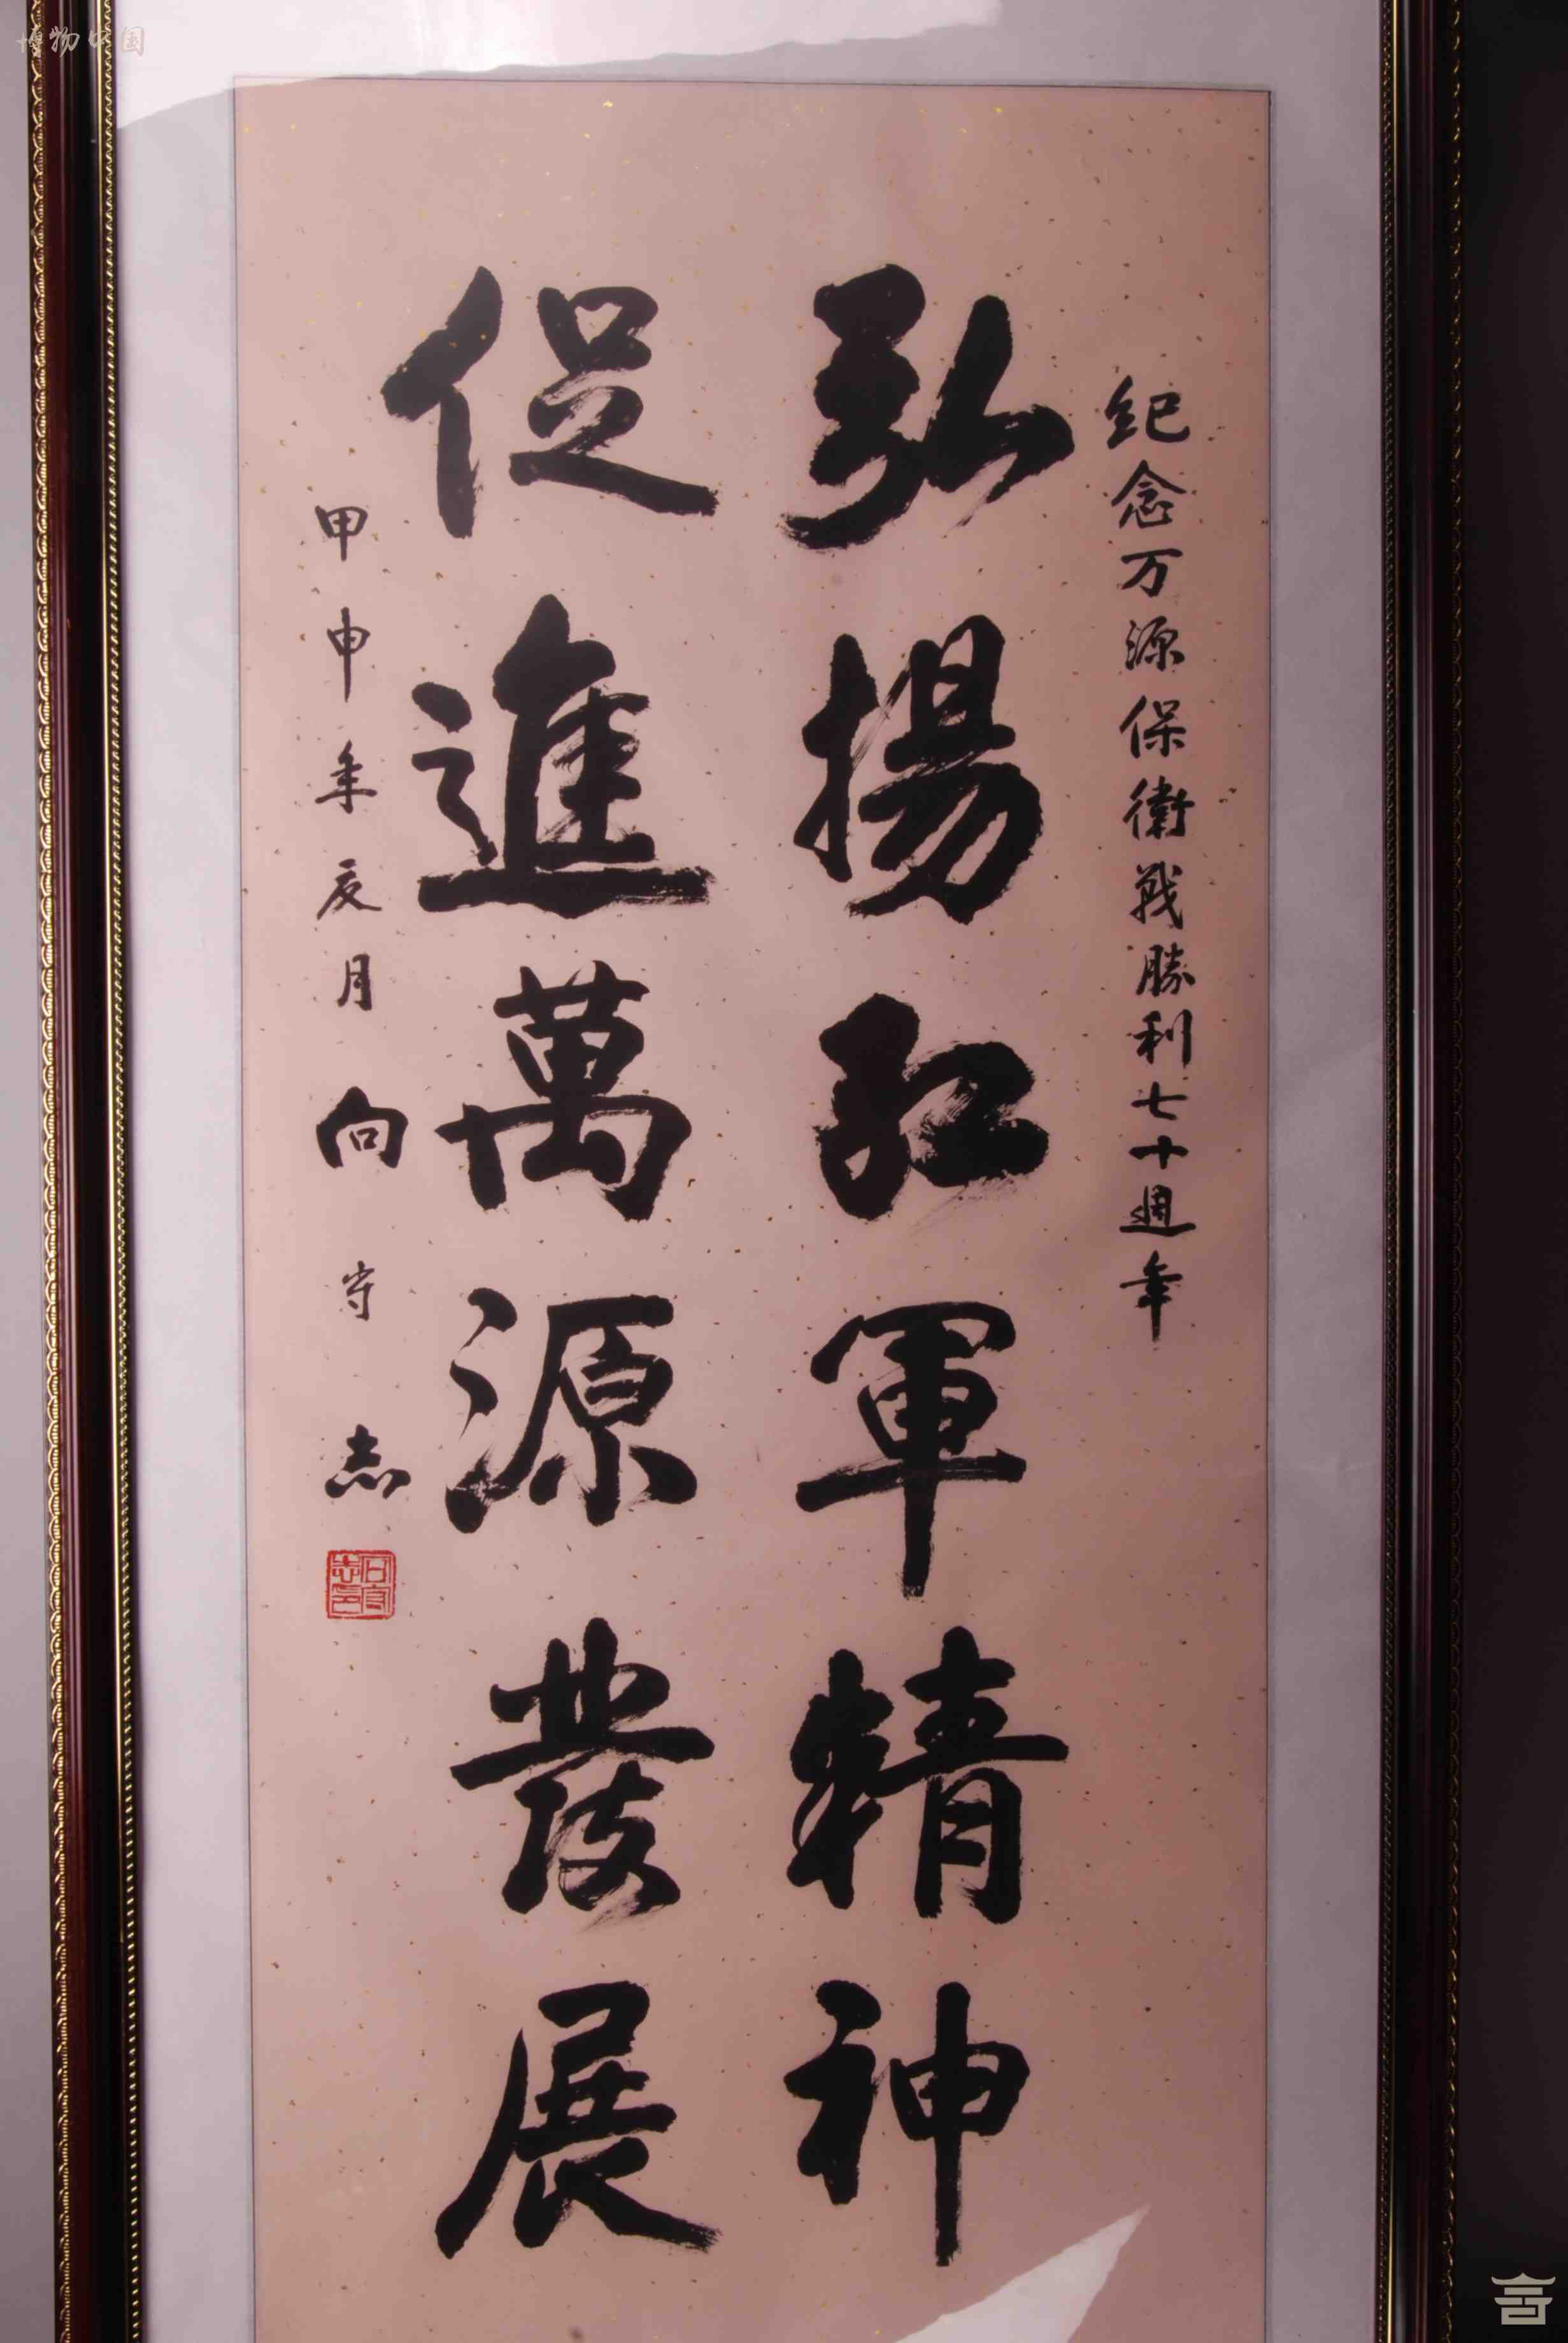 纪念万源保衛战勝利七十週年
弘揚红軍精神
促進萬源發展
甲申年夏月 向守志
博物中国